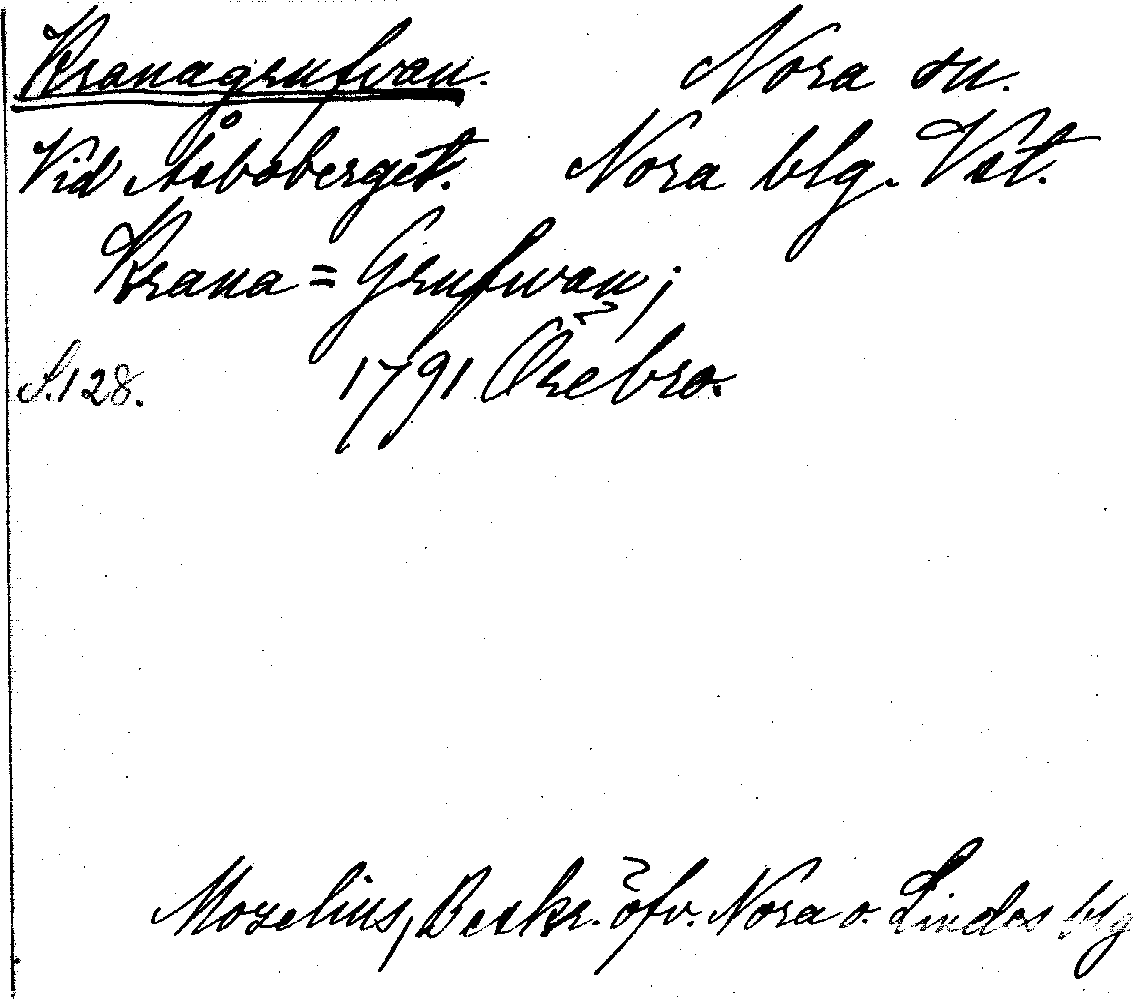 Kranagrufvan. Nora sn.
Vid Åsboberget. Nora blg. Vst.
Krana = Grufwan;
S. 128. 1791 Örebro.
Mozelius, Beskr. öfv. Nora o. Lindes blg